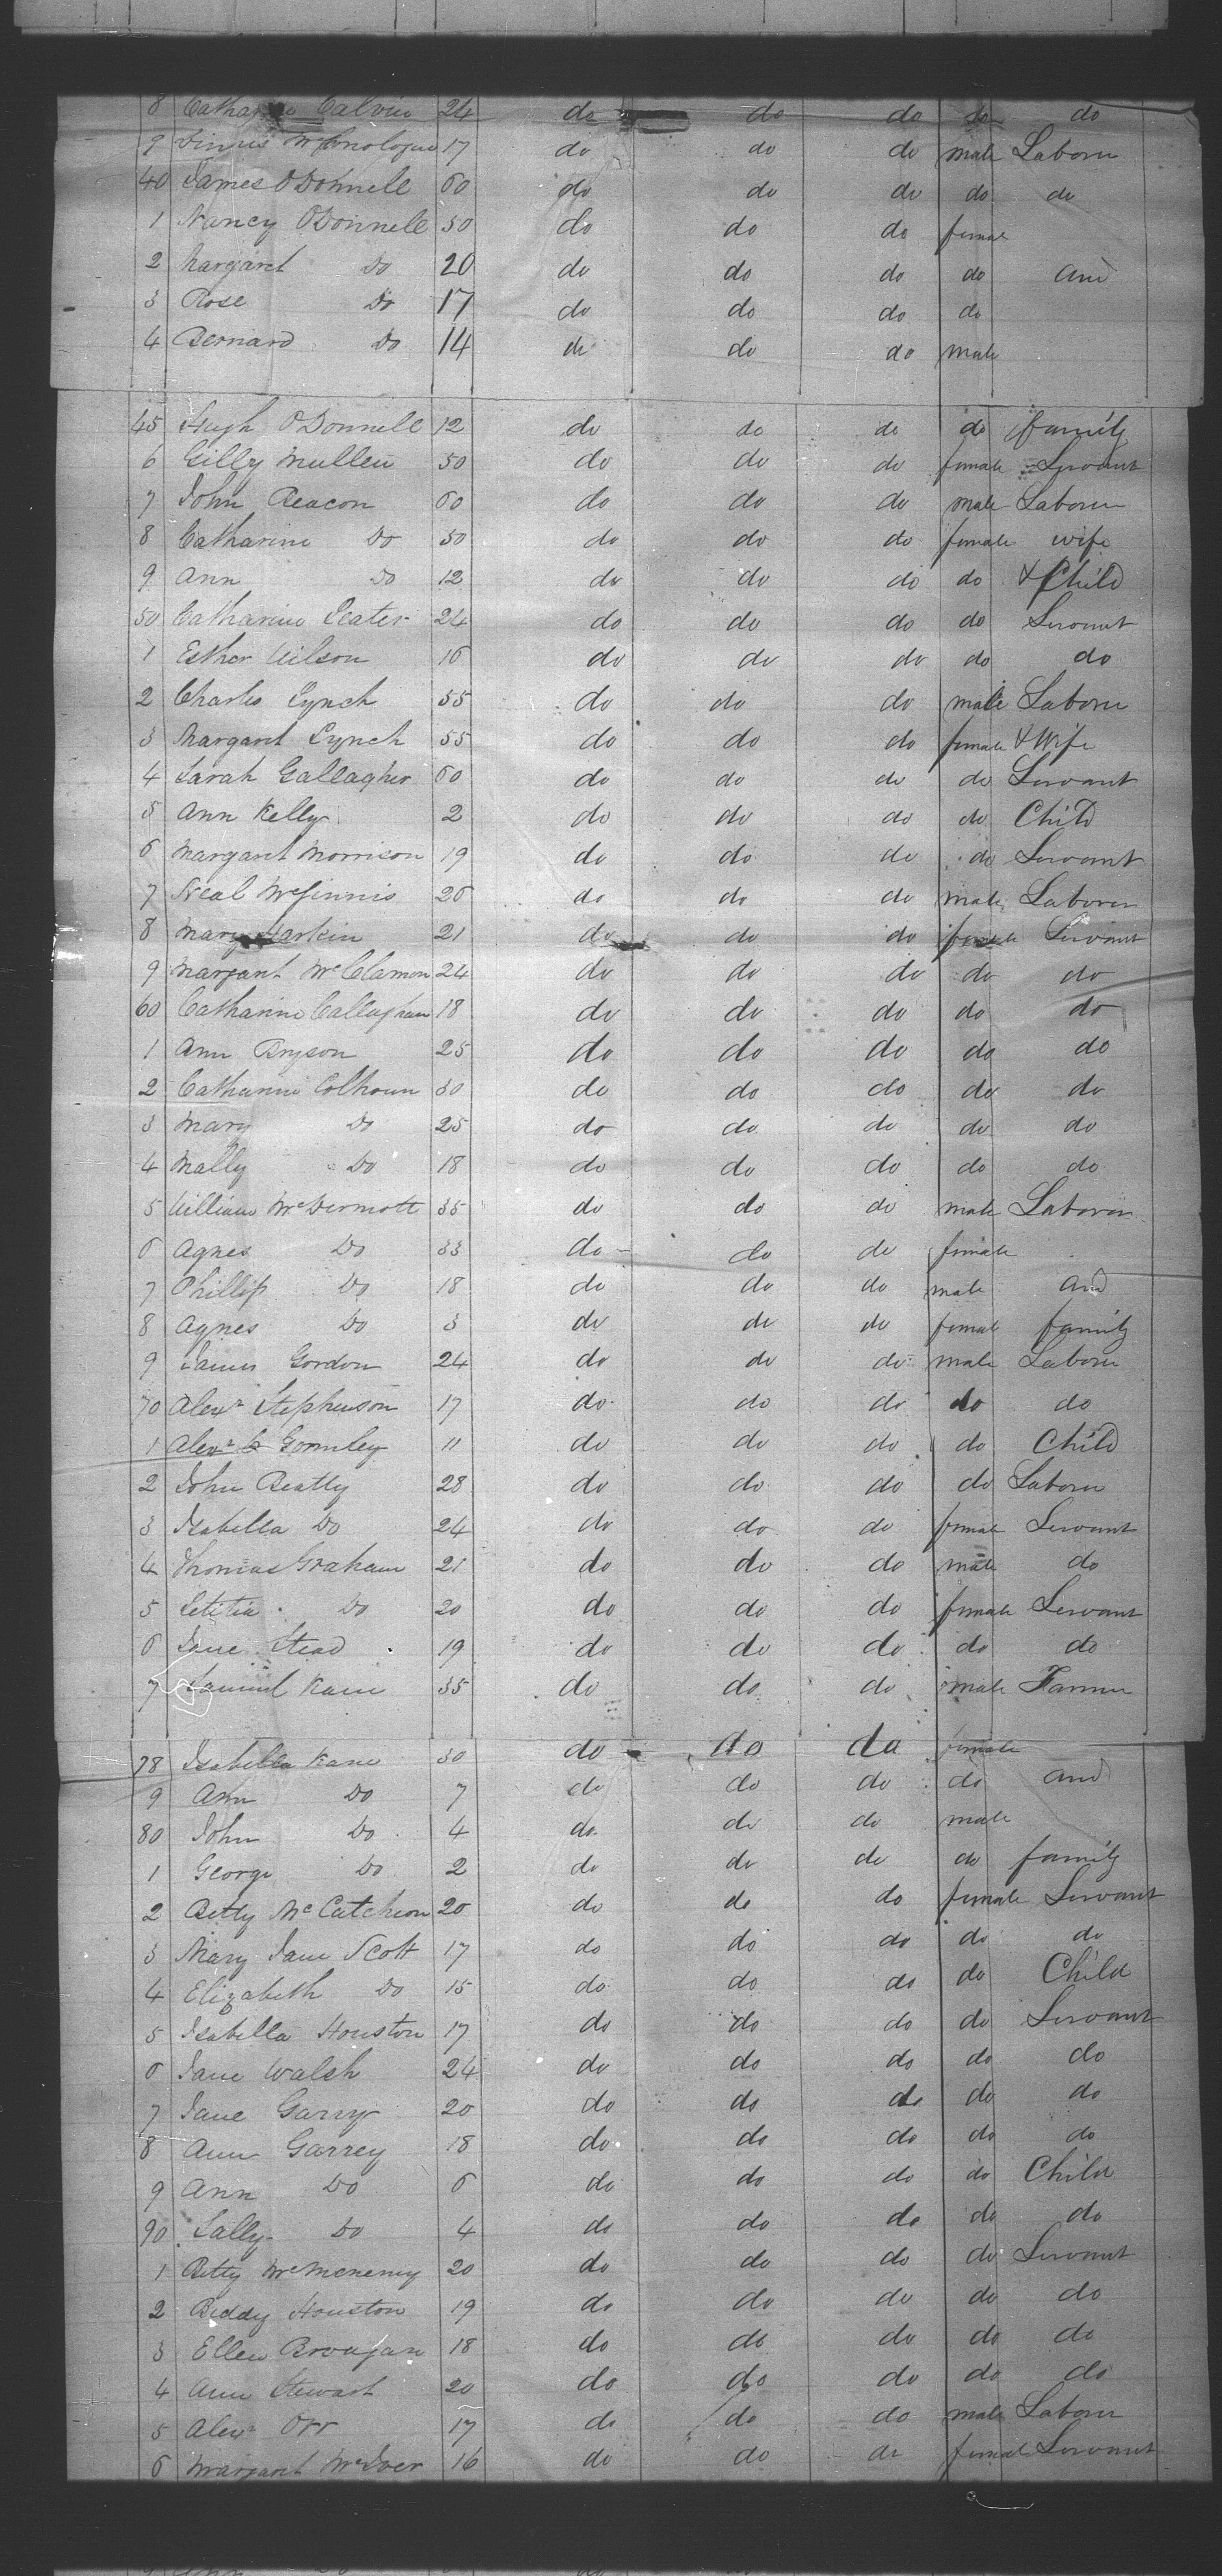 8 Catharine Calvin 24 do do do do do
9 McGonologue 17 do do do male Laborer
40 James ODonnell 60 do do do do do
1 Nancy ODonnell 50 do do do female
2 Margaret Do 20 do do do do and
3 Rose Do 17 do do do do
4 Bernard Do 14 do do do male
45 Hugh ODonnell 12 do do do do family
6 Gilly Mullen 50 do do do female Servant
7 John Deacon 60 do do do male Laborer
8 Catharine Do 50 do do do female wife
9 Ann Do 12 do do do do & Child
50 Catharine 24 do do do do Servant
1 Esther Wilson 16 do do do do do
2 Charles Lynch 55 do do do male Laborer
3 Margaret Lynch 55 do do do female & Wife
4 Sarah Gallagher 60 do do do do Servant
5 Ann Kelly 2 do do do do Child
6 Margaret Morrison 19 do do do do Servant
7 Neal McGinnis 26 do do do male Laborer
8 Mary Harkin 21 do do do female Servant
9 Margaret McClamon 24 do do do do do
60 Catharine Callaghan 18 do do do do do
1 Ann Bryson 25 do do do do do
2 Catharine Colhoun 30 do do do do do
3 Mary Do 25 do do do do do
4 Mally Do 18 do do do do do
5 William McDermott 35 do do do male Laborer
6 Agnes Do 33 do do do female
7 Phillip Do 18 do do do male and
8 Agnes Do 3 do do do female family
9 James Gordon 24 do do do male Laborer
70 Alexr Stephenson 17 do do do do do
1 Alexr Gormley 11 do do do do Child
2 John Beatty 28 do do do do Laborer
3 Isabella Do 24 do do do female Servant
4 Thomas Graham 21 do do do male do
5 Letitia Do 20 do do do female Servant
6 Jane Stead 19 do do do do do
7 Samuel Kane 35 do do do male Farmer
78 Isabella Kane 30 do do do female
9 Ann Do 7 do do do do and
80 John Do 4 do do do male
1 George Do 2 do do do do family
2 Betty McCutcheon 20 do do do female Servant
3 Mary Jane Scott 17 do do do do do
4 Elizabeth Do 15 do do do do Child
5 Isabella Houston 17 do do do do Servant
6 Jane Walsh 24 do do do do do
7 Jane Garvy 20 do do do do do
8 Ann Garrey 18 do do do do do
9 Ann Do 6 do do do do Child
90 Sally Do 4 do do do do do
1 Betty McMenemy 20 do do do do Servant
2 Biddy Houston 19 do do do do do
3 Ellen Brougan 18 do do do do do
4 Ann Stewart 20 do do do do do
5 Alexr Orr 17 do do do male Laborer
6 Margaret McIver 16 do do do female Servant